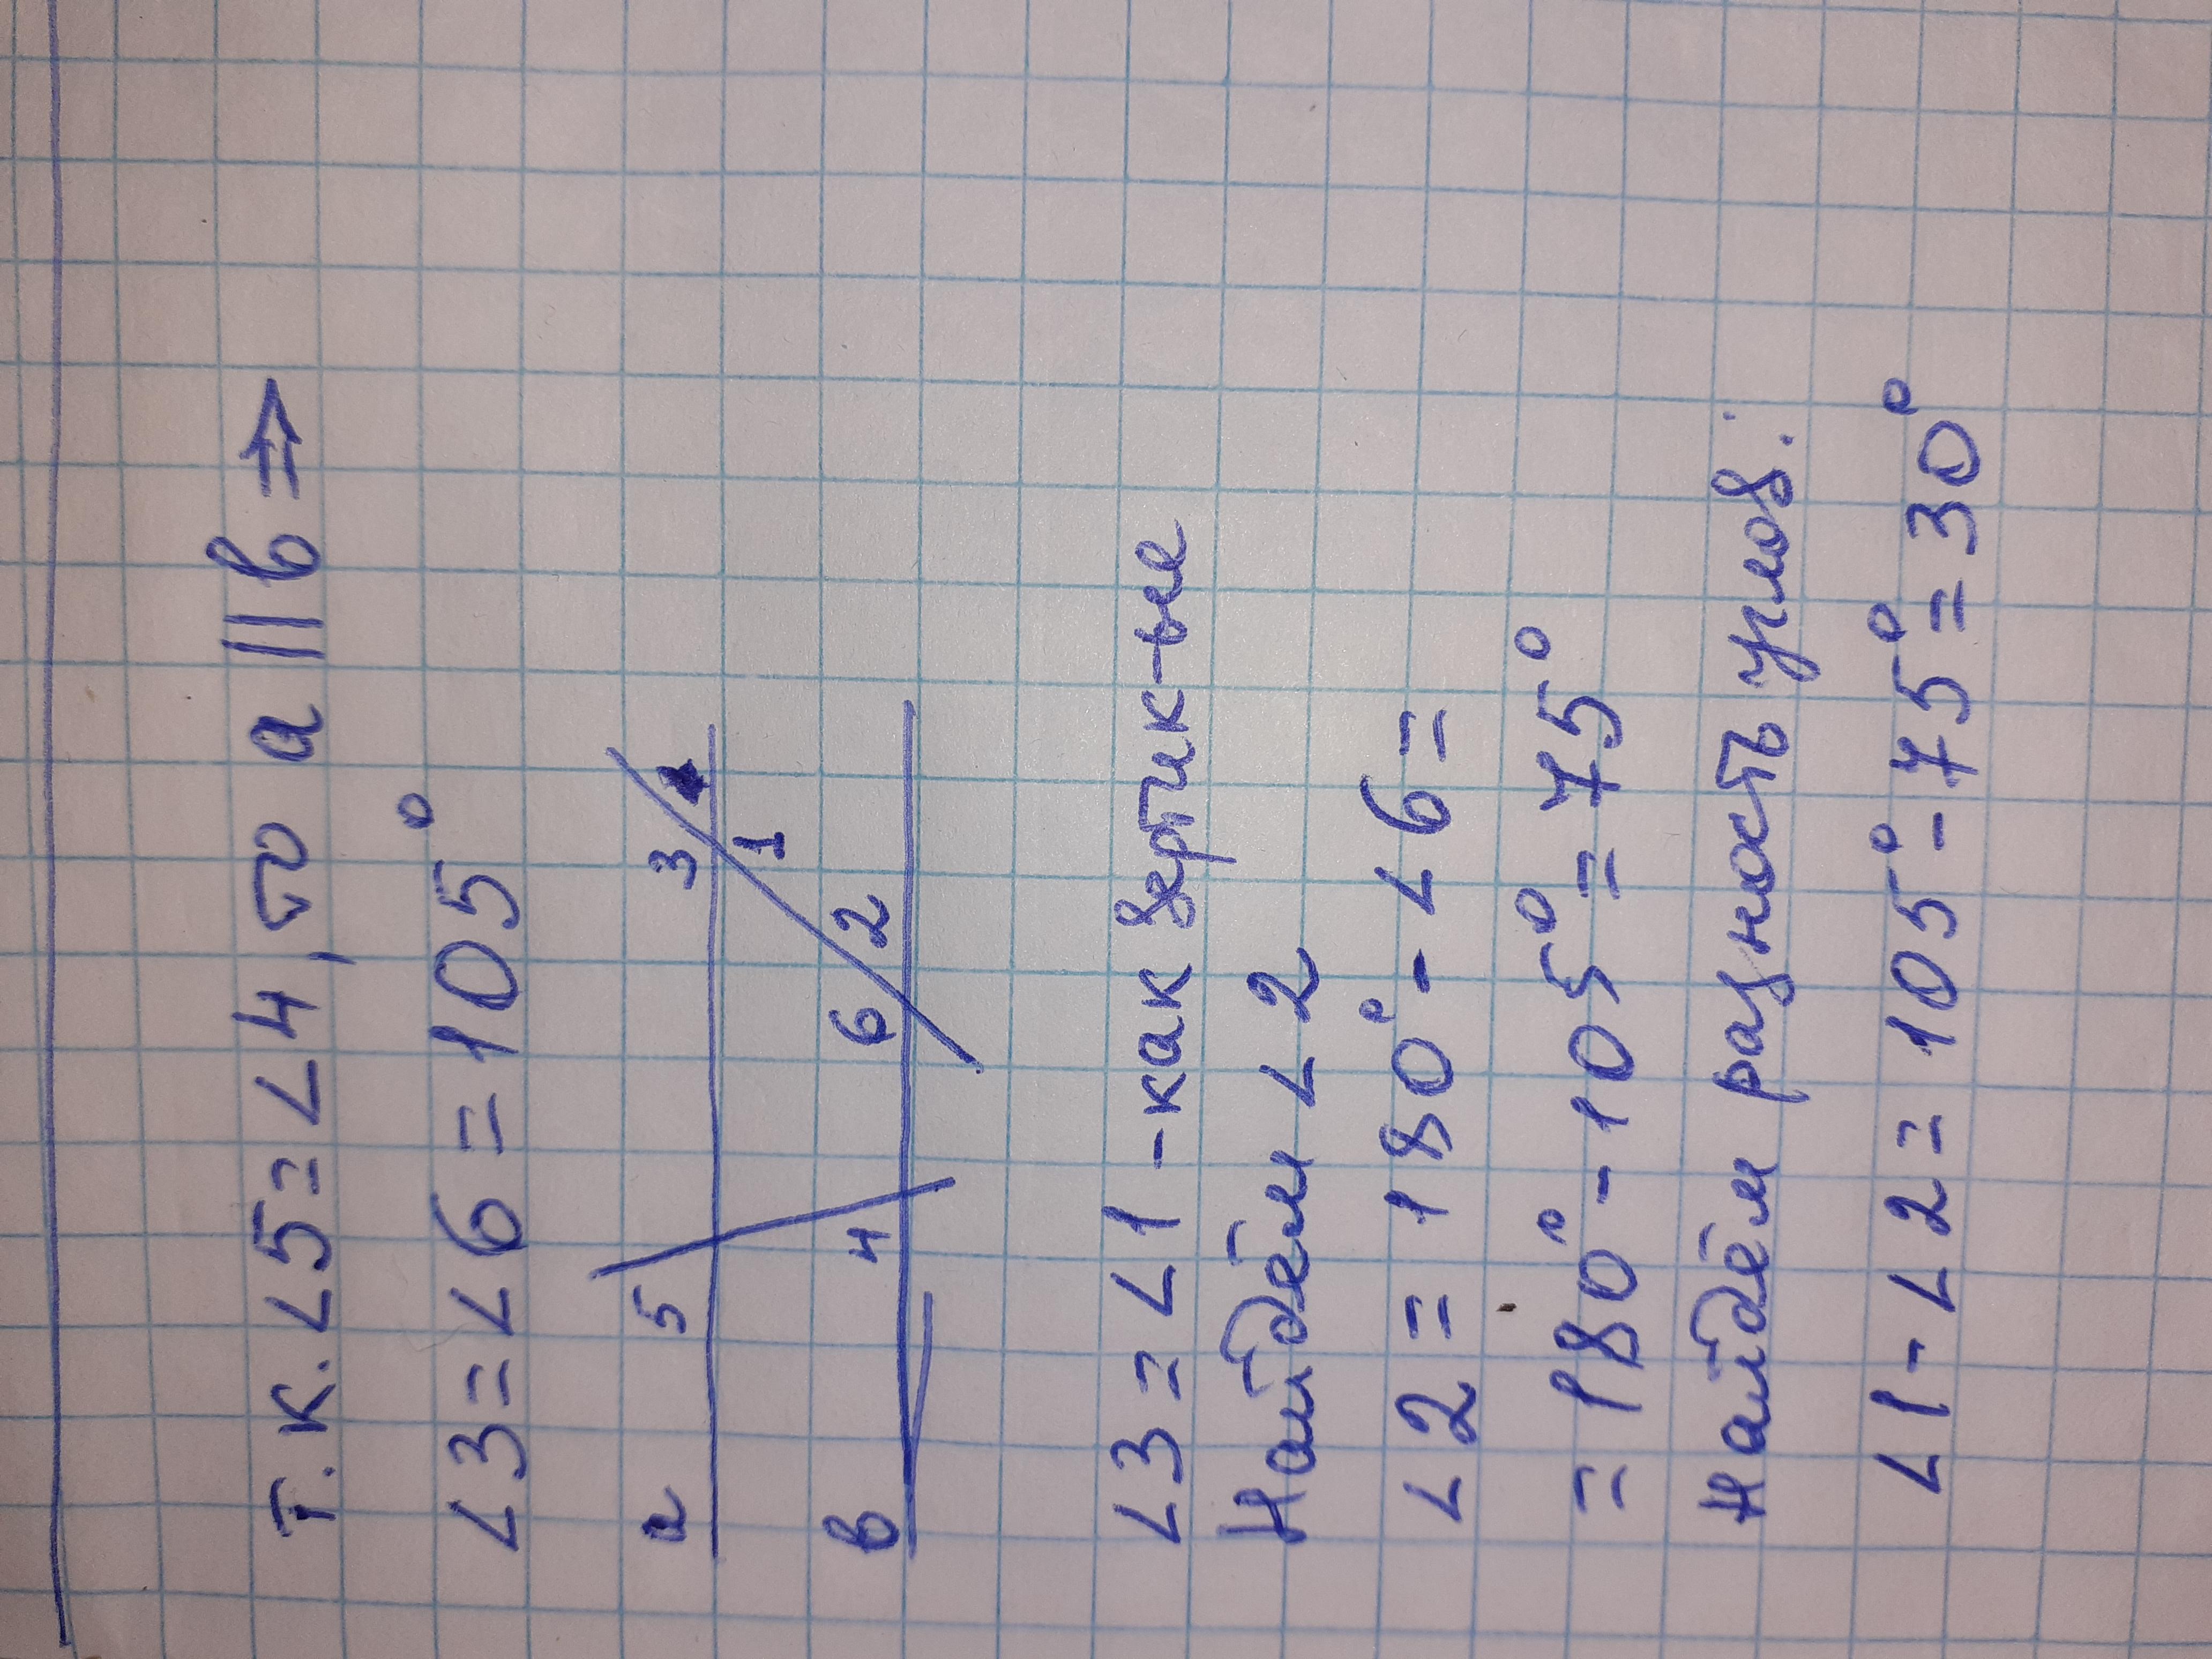 т.к. ∠5=∠4, то a || b ⇒
∠3=∠6=105°
a 5 3
1
b 4 6 2
∠3=∠1 - как вертик-ые
Найдём ∠2
∠2=180°-∠6=
=180°-105°=75°
Найдём разность углов:
∠1-∠2=105°-75°=30°